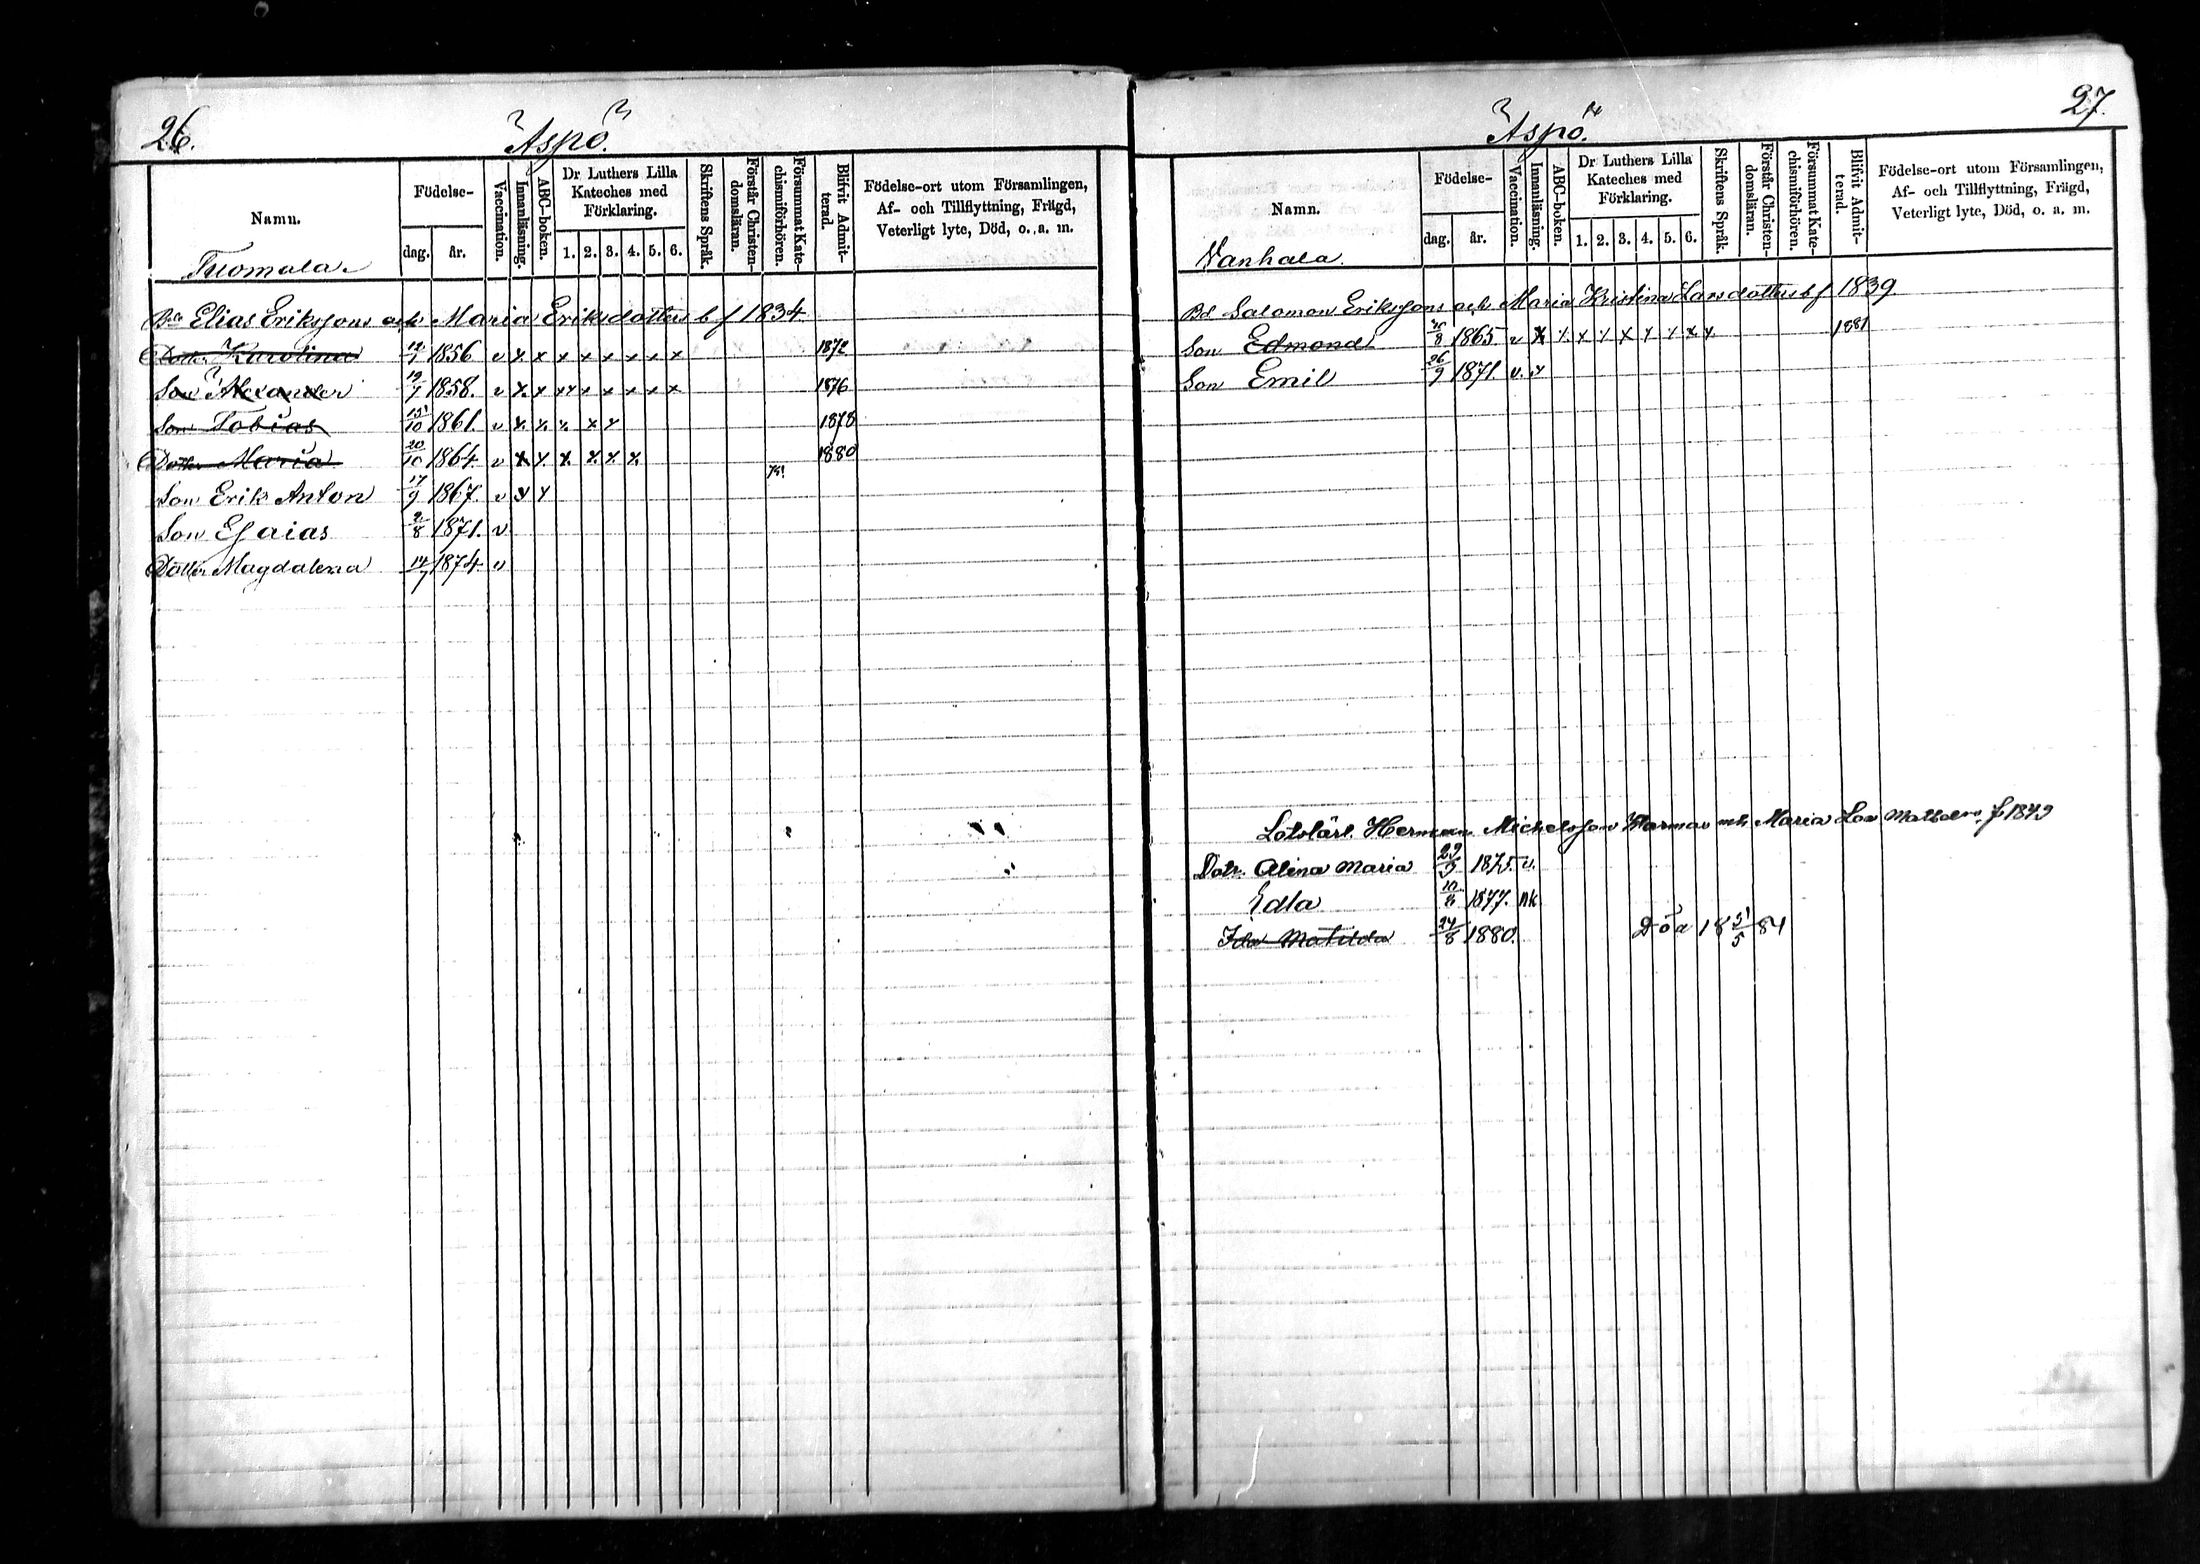 26.
Aspö.
Namn.
Födelse-
dag.
år.
Vaccination.
Innanläsning.
ABC-boken.
Dr Luthers Lilla
Kateches med
Förklaring.
1. 2. 3. 4. 5. 6.
Skriftens Språk.
Förstår Christen-
domsläran.
Försummat Kate-
chismiförhören.
Blifvit Admit-
terad.
Födelse-ort utom Församlingen,
Af- och Tillflyttning, Frägd,
Veterligt lyte, Död, o. a. m.
Tuomala
Elias Erikssons och Maria Eriksdotters b f 1834.
Dotter Karolina 12/7 1856 v x x x x x x x x 1872
Son Alexander 19/7 1858. v x x xx x x x x x 1876
Son Tobias 15/10 1861. v x x x x x 1878
Dotter Maria 20/10 1864 v x x x x x x 1880
Son Erik Anton 17/9 1867. v x x
Son Esaias 2/8 1871. v
Dotter Magdalena 14/7 1874 v
27.
Aspö.
Namn.
Födelse-
dag.
år.
Vaccination.
Innanläsning.
ABC-boken.
Dr Luthers Lilla
Kateches med
Förklaring.
1. 2. 3. 4. 5. 6.
Skriftens Språk.
Förstår Christen-
domsläran.
Försummat Kate-
chismiförhören.
Blifvit Admit-
terad.
Födelse-ort utom Församlingen,
Af- och Tillflyttning, Frägd,
Veterligt lyte, Död, o. a. m.
Wanhala.
Bd Salomon Erikssons och Maria Kristina Larsdotters b f 1839
Son Edmond 1865 v x x x x x x x x x 1881
Son Emil 26/9 1871. v. x
Lotslärl. Herman Michelsson Harma och Maria Lov. f 1849
Dotr. Alina Maria 29/3 1875. v.
Edla 1877. nk
Ida Matilda 24/8 1880. Död 18 5/5 81